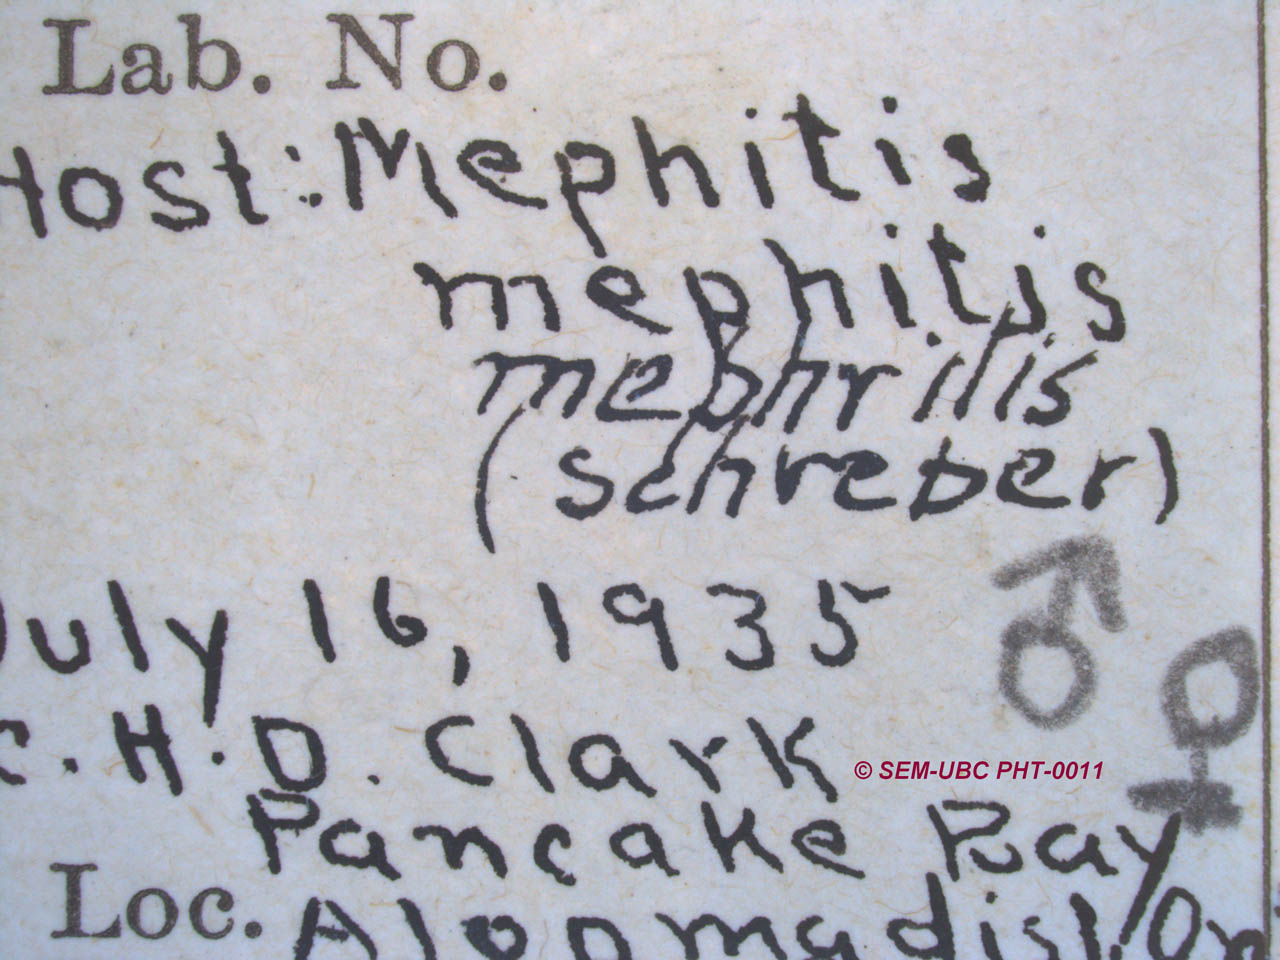 Lab. No.
Host: Mephitis
mephitis
mephrilis
(schreber)
July 16, 1935 ♂ ♀
C. H. D. Clark
© SEM-UBC PHT-0011
Pancake Bay
Loc. Algoma dist., On